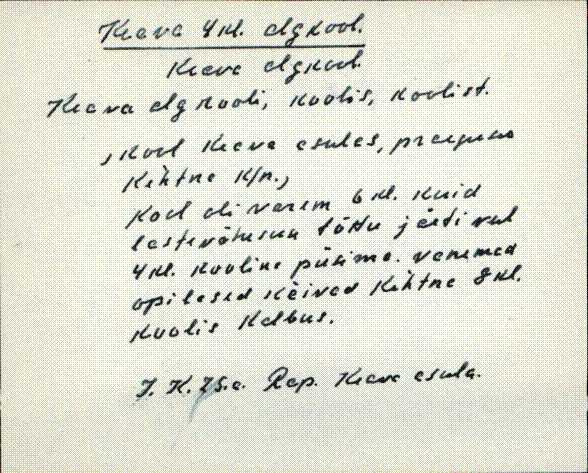 Keava 4 kl. Algkool.
Keava Algkool.
Keava Algkooli, koolis, koolist.
, kool Keava asulas, praegune
Kehtna K/n.,
Kool oli varem 6 kl. kuid
lastevähesuse tõttu jäeti vaid
4 kl. koolina püsima. vanemad
õpilased käivad Kehtna 8 kl.
koolis Kalbus.
J. K. 75.a. Rap. Keava asula.